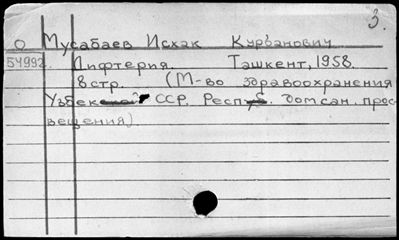 3.
О Мусабаев Исхак Курбанович
54992. Дифтерия. Ташкент, 1958.
8 стр. (М-во здравоохранения
Узбек ССР. Респуб. дом сан. прос-
вещения)